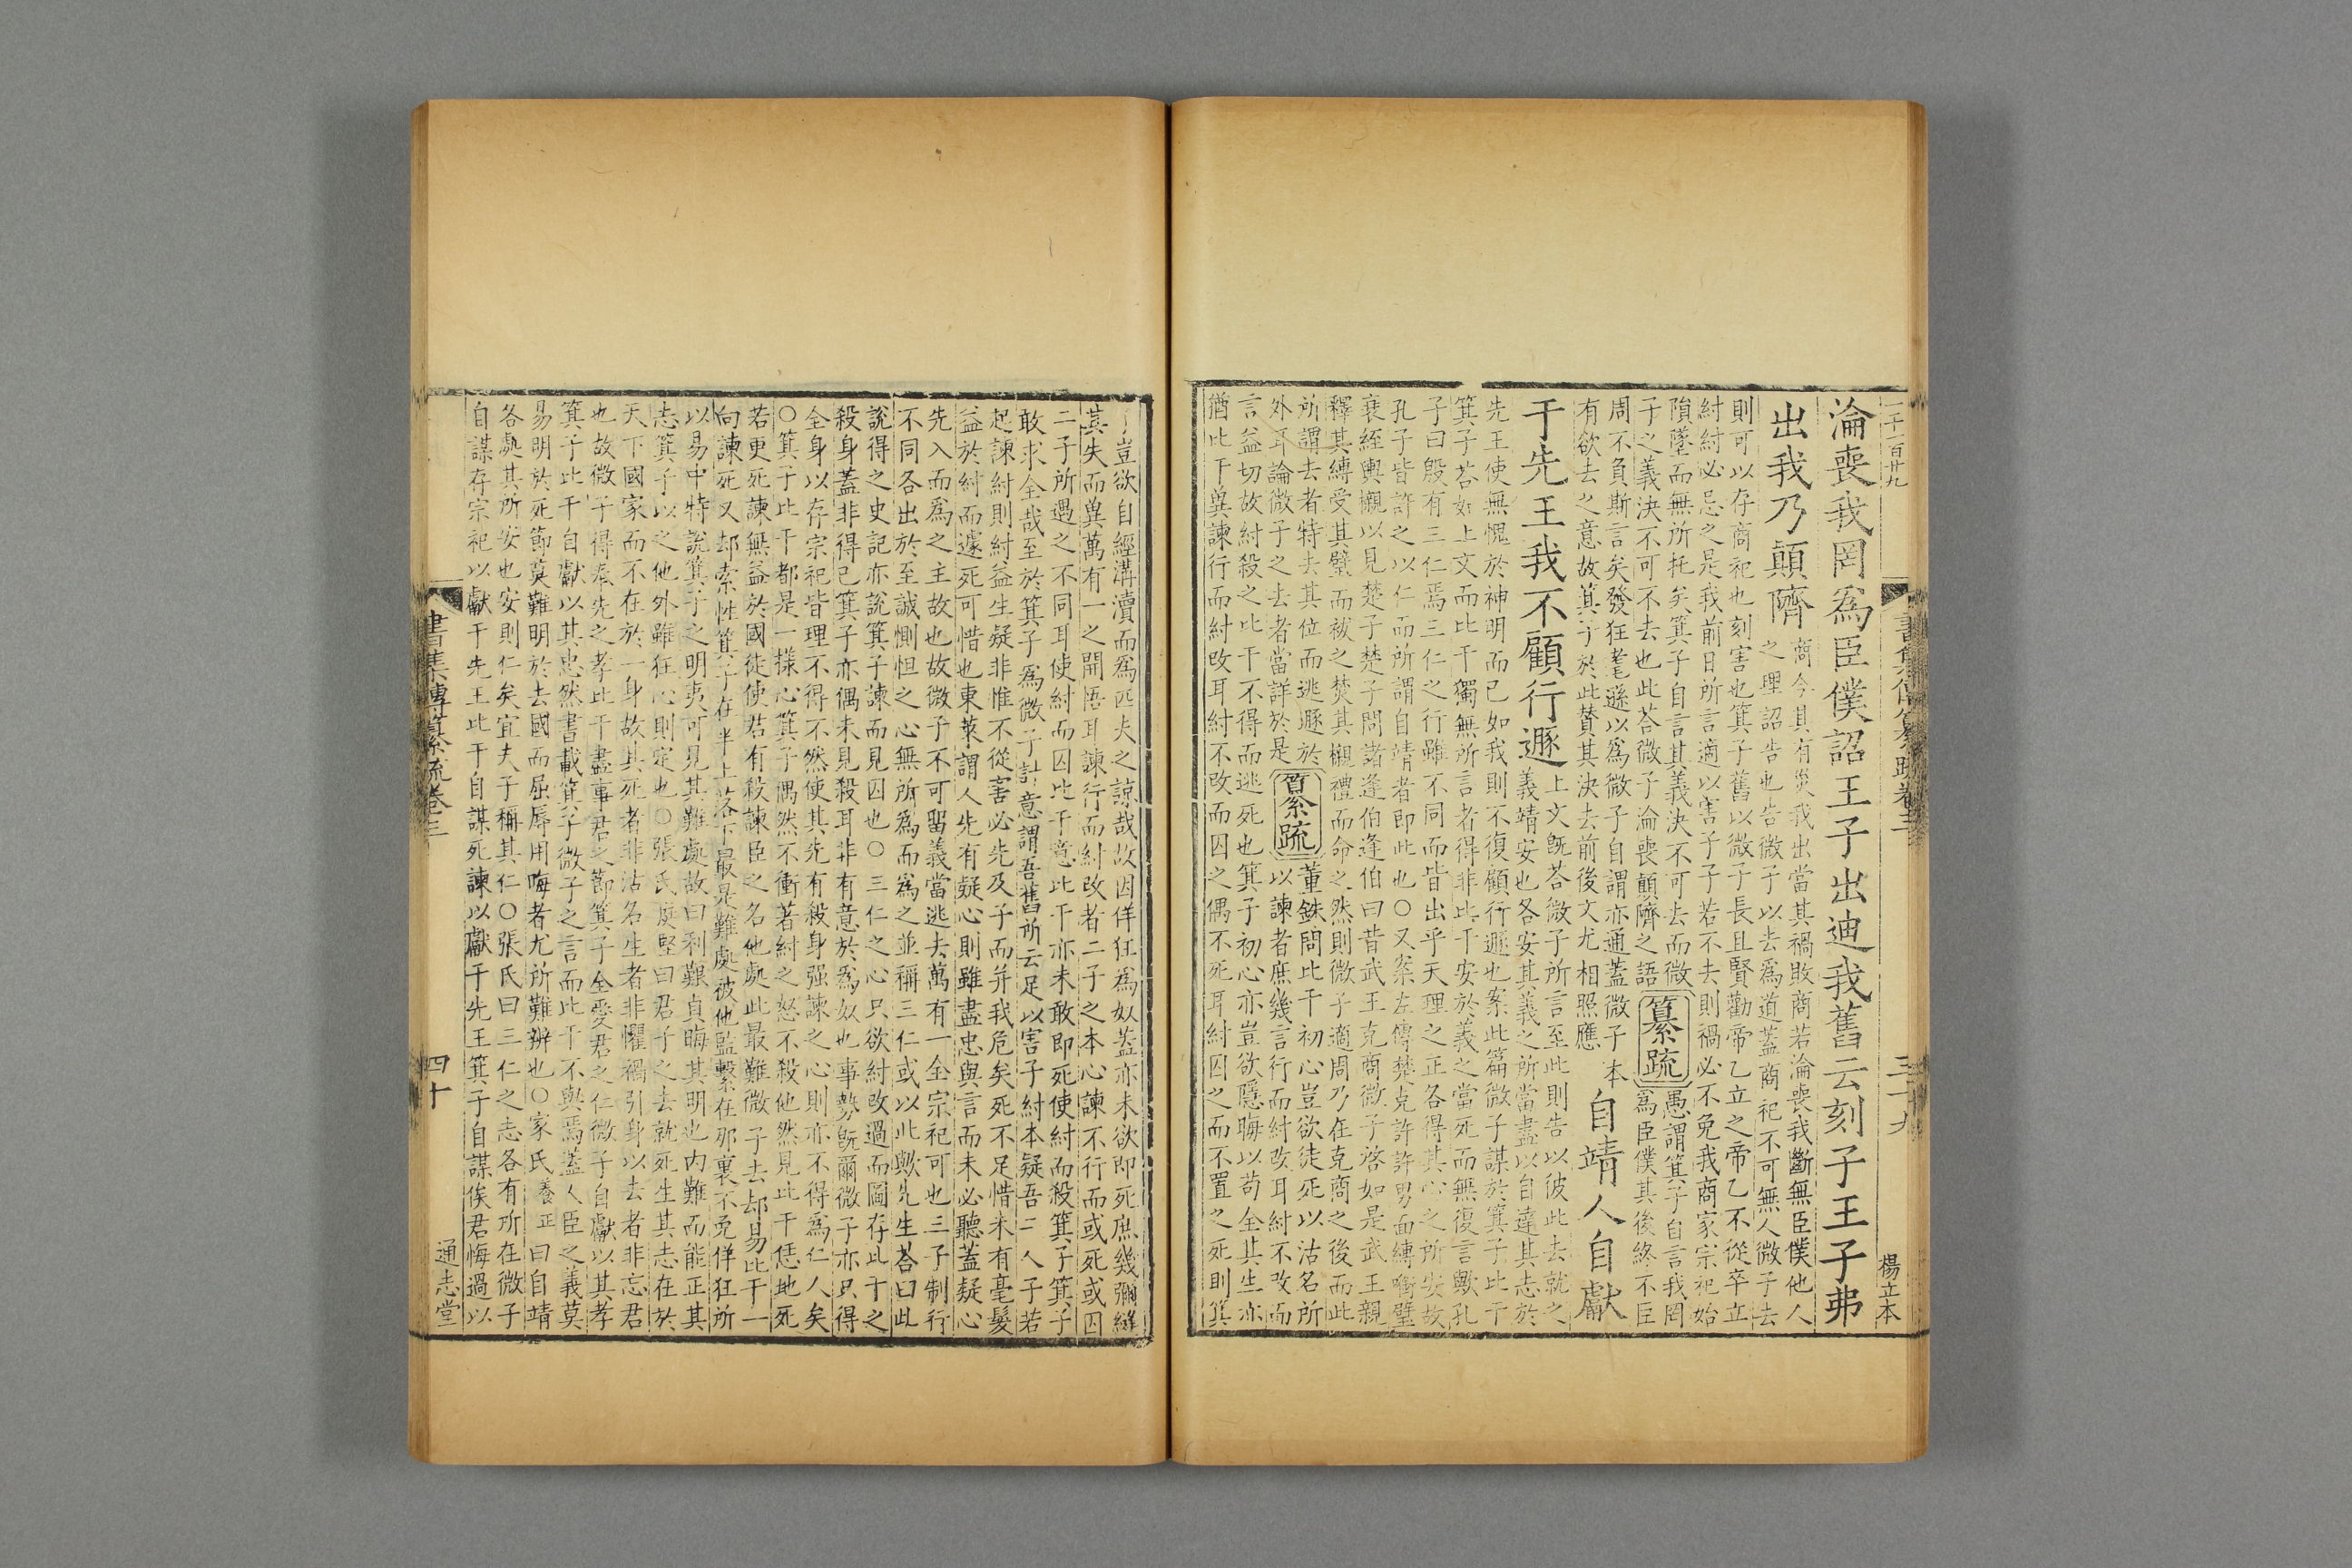 一千一百廿九
書集傳纂疏卷三
三十九
楊立本
淪喪我罔爲臣僕詔王子出迪我舊云刻子王子弗
出我乃顛隮
商今其有災我出當其禍敗商若淪喪我斷無臣僕他人
之理詔告也告微子以去爲道蓋商祀不可無人微子去
則可以存商祀也刻害也箕子舊以微子長且賢勸帝乙立之帝乙不從卒立
紂紂必忌之是我前日所言適以害子子若不去則禍必不免我商家宗祀始
隕墜而無所托矣箕子自言其義決不可去而微
子之義決不可不去也此荅微子淪喪顛隮之語
纂疏
愚謂箕子自言我罔
爲臣僕其後終不臣
周不負斯言矣發狂耄遜以爲微子自謂亦通蓋微子本
有欲去之意故箕子於此贊其決去前後文尤相照應
自靖人自獻
于先王我不顧行遯
上文旣荅微子所言至此則告以彼此去就之
義靖安也各安其義之所當盡以自達其志於
先王使無愧於神明而已如我則不復顧行遯也案此篇微子謀於箕子比干
箕子荅如上文而比干獨無所言者得非比干安於義之當死而無復言歟孔
子曰殷有三仁焉三仁之行雖不同而皆出乎天理之正各得其心之所安故
孔子皆許之以仁而所謂自靖者即此也○又案左傳楚克許許男面縛銜璧
衰絰輿櫬以見楚子楚子問諸逢伯逢伯曰昔武王克商微子啓如是武王親
釋其縛受其璧而祓之焚其櫬禮而命之然則微子適周乃在克商之後而此
所謂去者特去其位而逃遯於
外耳論微子之去者當詳於是
纂疏
董銖問比干初心豈欲徒死以沽名所
以諫者庶幾言行而紂改耳紂不改而
言益切故紂殺之比干不得而逃死也箕子初心亦豈欲隱晦以苟全其生亦
猶比干兾諫行而紂改耳紂不改而囚之偶不死耳紂囚之而不置之死則箕
子豈欲自經溝瀆而爲匹夫之諒哉故因佯狂爲奴蓋亦未欲即死庶幾彌縫
其失而兾萬有一之開悟耳諫行而紂改者二子之本心諫不行而或死或囚
二子所遇之不同耳使紂而囚比干意比干亦未敢即死使紂而殺箕子箕子
敢求全哉至於箕子爲微子計意謂吾舊所云足以害子紂本疑吾二人子若
起諫紂則紂益生疑非惟不從害必先及子而并我危矣死不足惜未有毫髮
益於紂而遽死可惜也東萊謂人先有疑心則雖盡忠與言而未必聽蓋疑心
先入而爲之主故也故微子不可留義當逃去萬有一全宗祀可也三子制行
不同各出於至誠惻怛之心無所爲而爲之並稱三仁或以此歟先生荅曰此
說得之史記亦說箕子諫而見囚也○三仁之心只欲紂改過而圖存比干之
殺身蓋非得已箕子亦偶未見殺耳非有意於爲奴也事勢旣爾微子亦只得
全身以存宗祀皆理不得不然使其先有殺身强諫之心則亦不得爲仁人矣
○箕子比干都是一樣心箕子偶然不衝著紂之怒不殺他然見比干恁地死
若更死諫無益於國徒使君有殺諫臣之名他處此最難微子去却易比干一
向諫死又却索性箕子在半上落下最是難處被他監繫在那裏不免佯狂所
以易中特說箕子之明夷可見其難處故曰利艱貞晦其明也内難而能正其
志箕子以之他外雖狂心則定也○張氏庭堅曰君子之去就死生其志在於
天下國家而不在於一身故其死者非沽名生者非懼禍引身以去者非忘君
也故微子得奉先之孝比干盡事君之節箕子全愛君之仁微子自獻以其孝
箕子比干自獻以其忠然書載箕子微子之言而比干不與焉蓋人臣之義莫
易明於死節莫難明於去國而屈辱用晦者尤所難辨也○家氏養正曰自靖
各處其所安也安則仁矣宜夫子稱其仁○張氏曰三仁之志各有所在微子
自謀存宗祀以獻于先王比干自謀死諫以獻于先王箕子自謀俟君悔過以
書集傳纂疏卷三
四十
通志堂